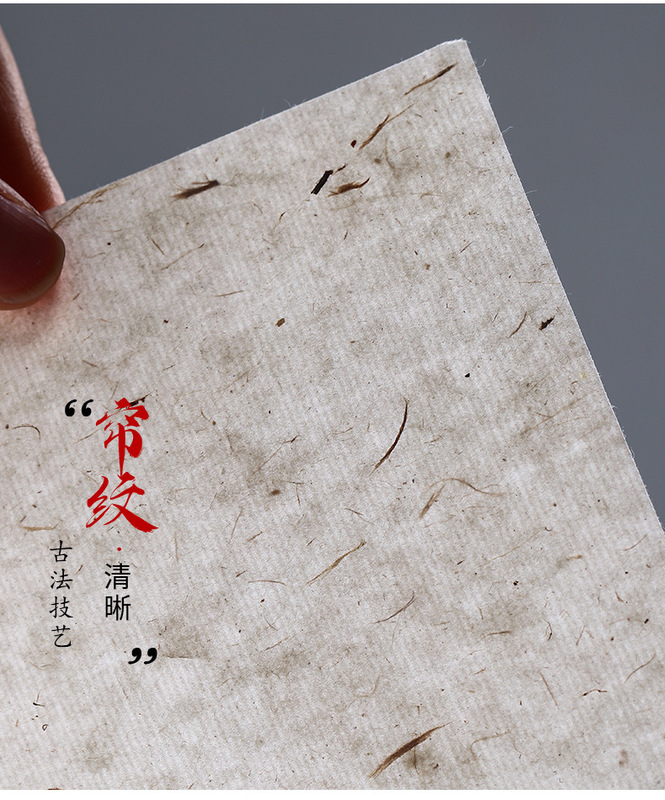 “帘纹·清晰
古法技艺”